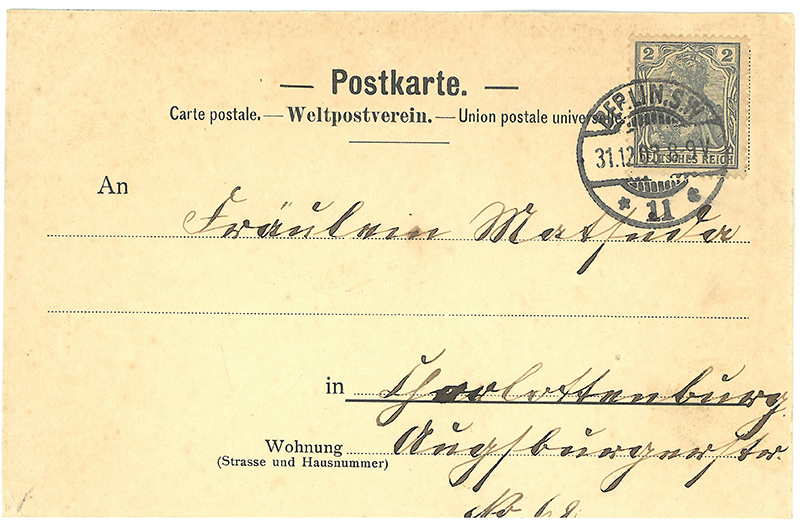 — Postkarte. —
Carte postale. — Weltpostverein. — Union postale universelle.
2 2
DEUTSCHES REICH
BERLIN.S.W.
31.12.02.8-9V.
* 11 *
An
Fräulein Matsuda
in Charlottenburg
Wohnung Augsburgerstr.
(Strasse und Hausnummer)
No. 68